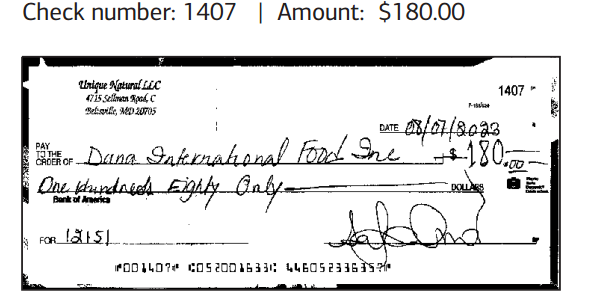 Check number: 1407 | Amount: $180.00
Unique Natural LLC
4715 Sellman Road, C
Beltsville, MD 20705
1407
DATE 08/07/2023
PAY TO THE ORDER OF Dana International Food Inc $180.00
One Hundreds Eighty Only DOLLARS
Bank of America
FOR 12151